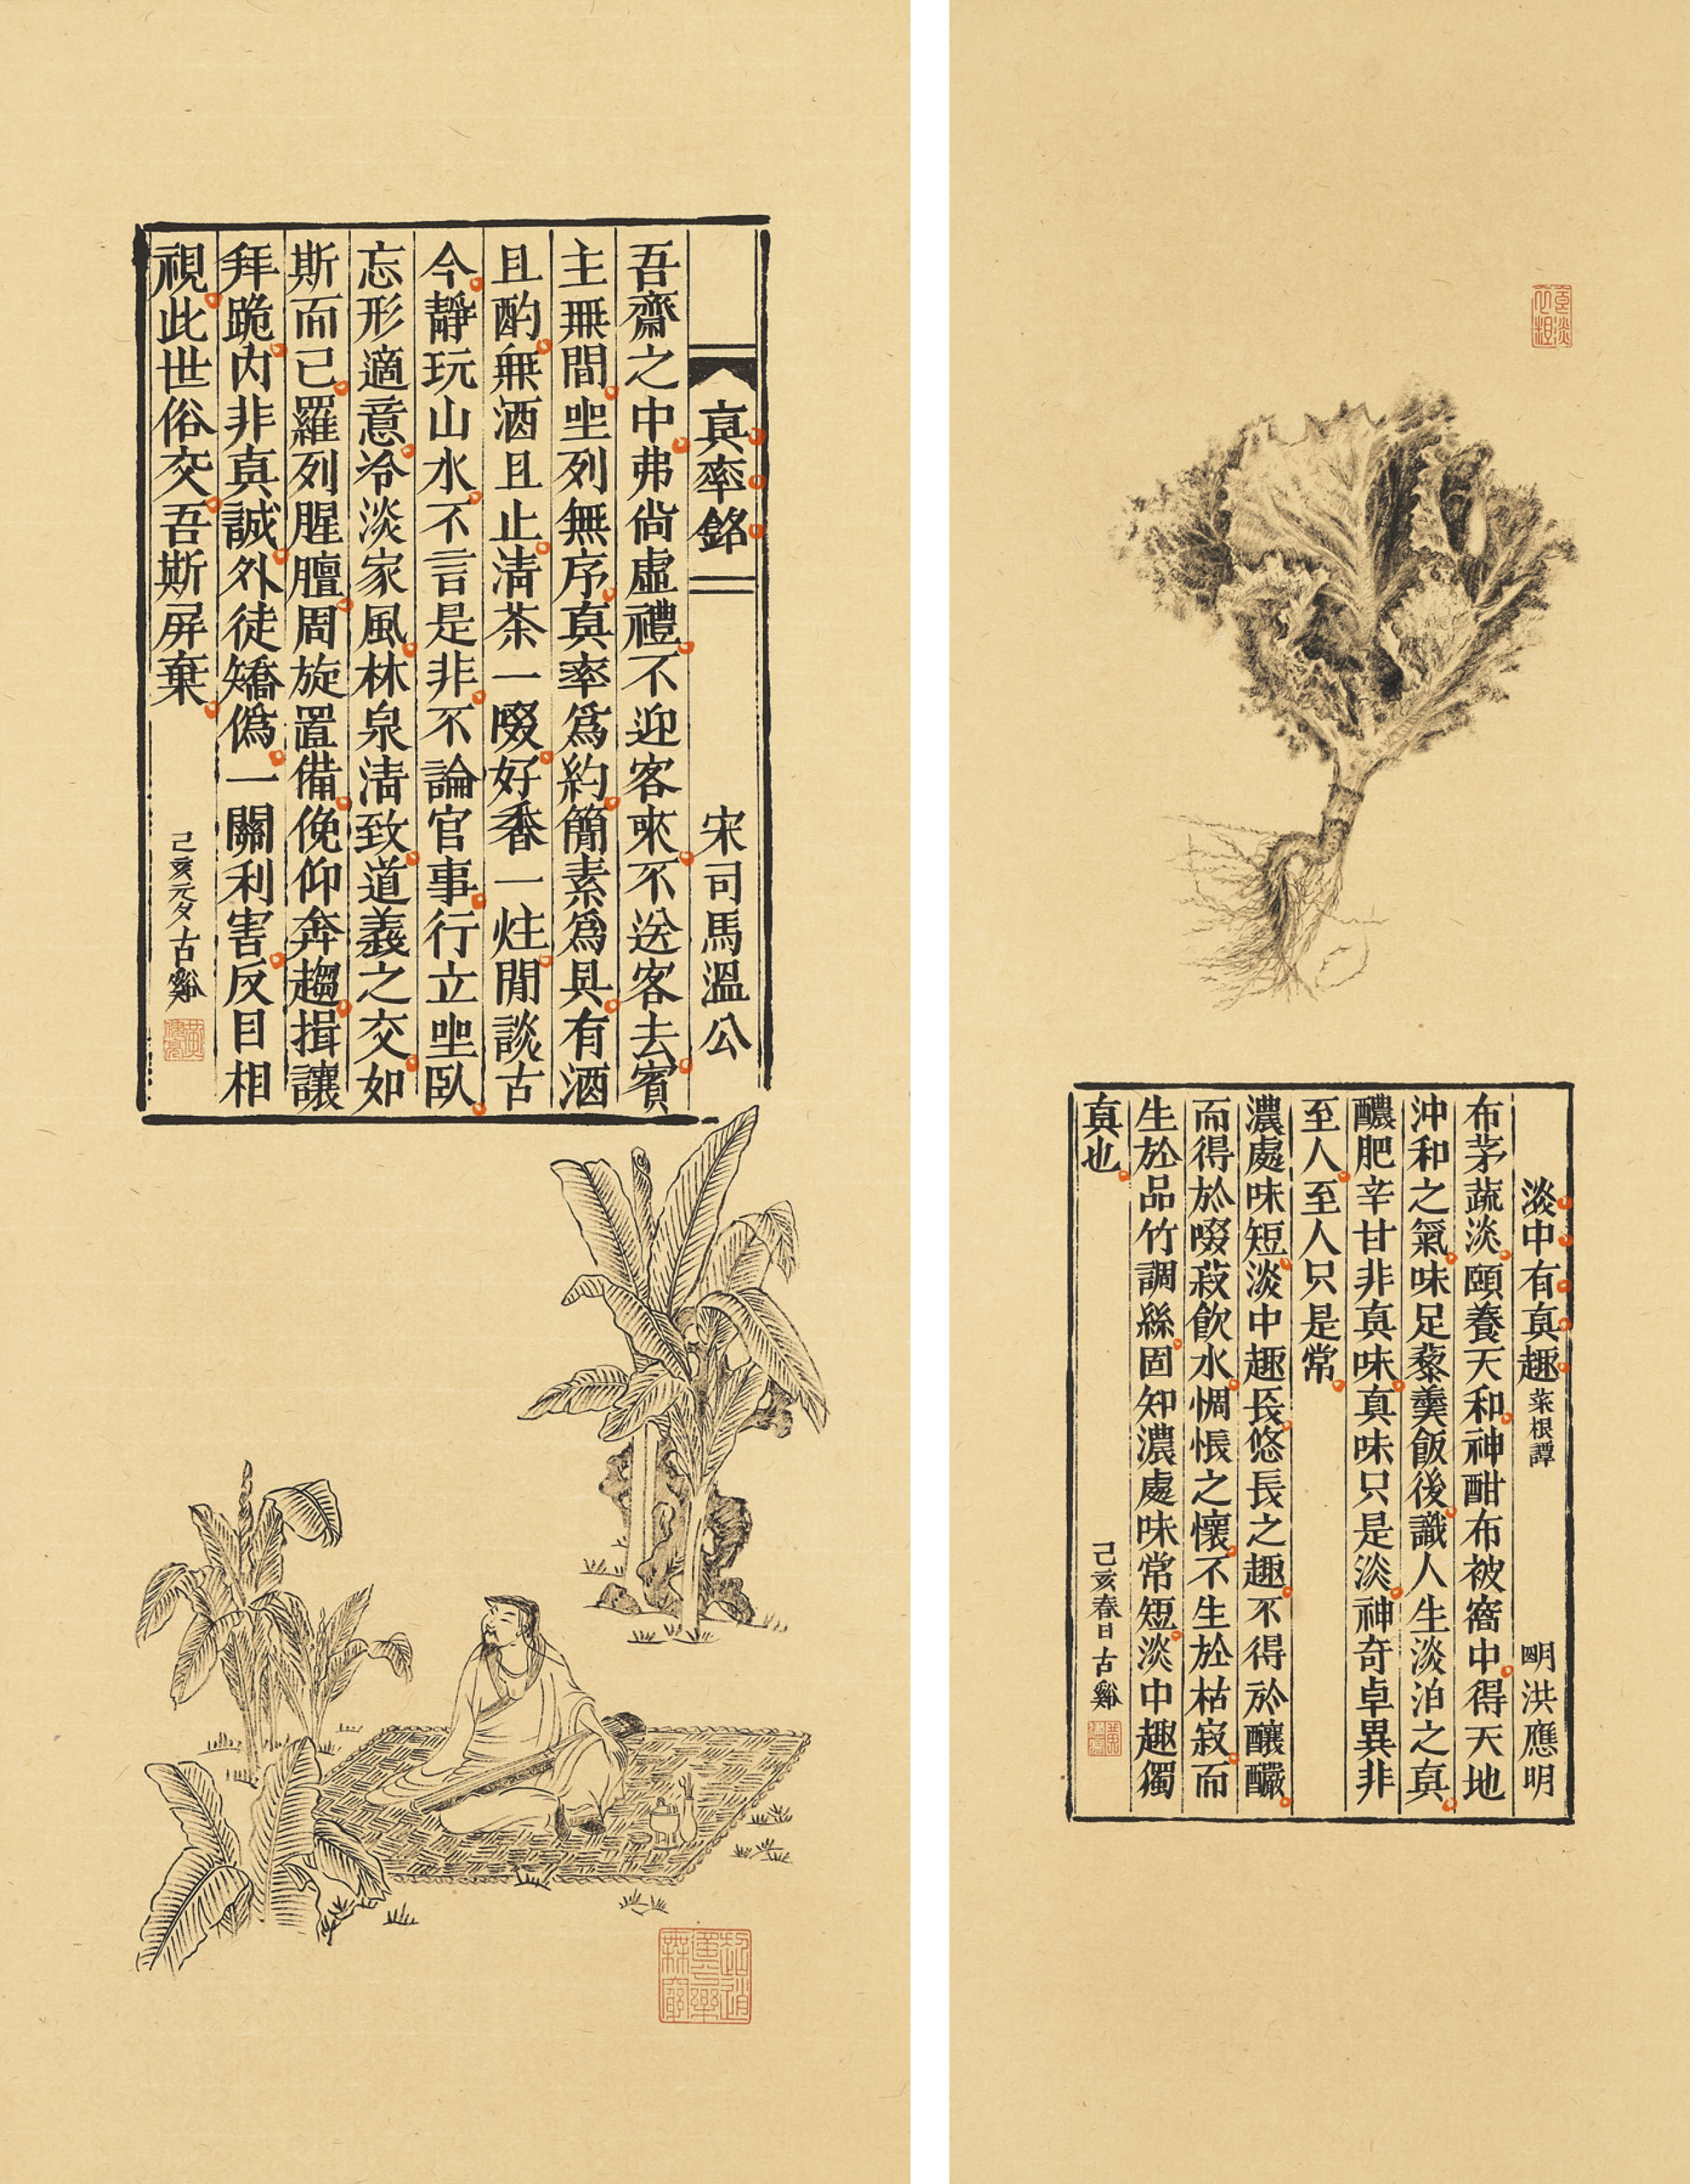 真率銘 宋司馬溫公
吾齋之中弗尚虛禮不迎客來不送客去賓
主無間坐列無序真率爲約簡素爲具有酒
且酌無酒且止清茶一啜好香一炷閒談古
今靜玩山水不言是非不論官事行立坐臥
忘形適意冷淡家風林泉清致道義之交如
斯而已羅列腥膻周旋置備俛仰奔趨揖讓
拜跪内非真誠外徒矯僞一關利害反目相
視此世俗交吾斯屏棄
己亥元夕古谿
淡中有真趣 菜根譚 明洪應明
布茅蔬淡頤養天和神酣布被窩中得天地
沖和之氣味足藜羹飯後識人生淡泊之真
醲肥辛甘非真味真味只是淡神奇卓異非
至人至人只是常
濃處味短淡中趣長悠長之趣不得於釀釅
而得於啜菽飲水惆悵之懷不生於枯寂而
生於品竹調絲固知濃處味常短淡中趣獨
真也
己亥春日古谿